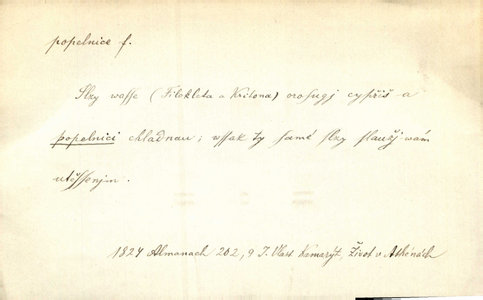 popelnice f.
Slzy wasse (Filokleta a Kritona) orosugj cypřiš a
popelnici chladnau; wssak ty samé slzy slaužj wám
utěssenjm.
1824 Almanach 202, 9 J. Vlast. Kamarýt, Život v Athénách